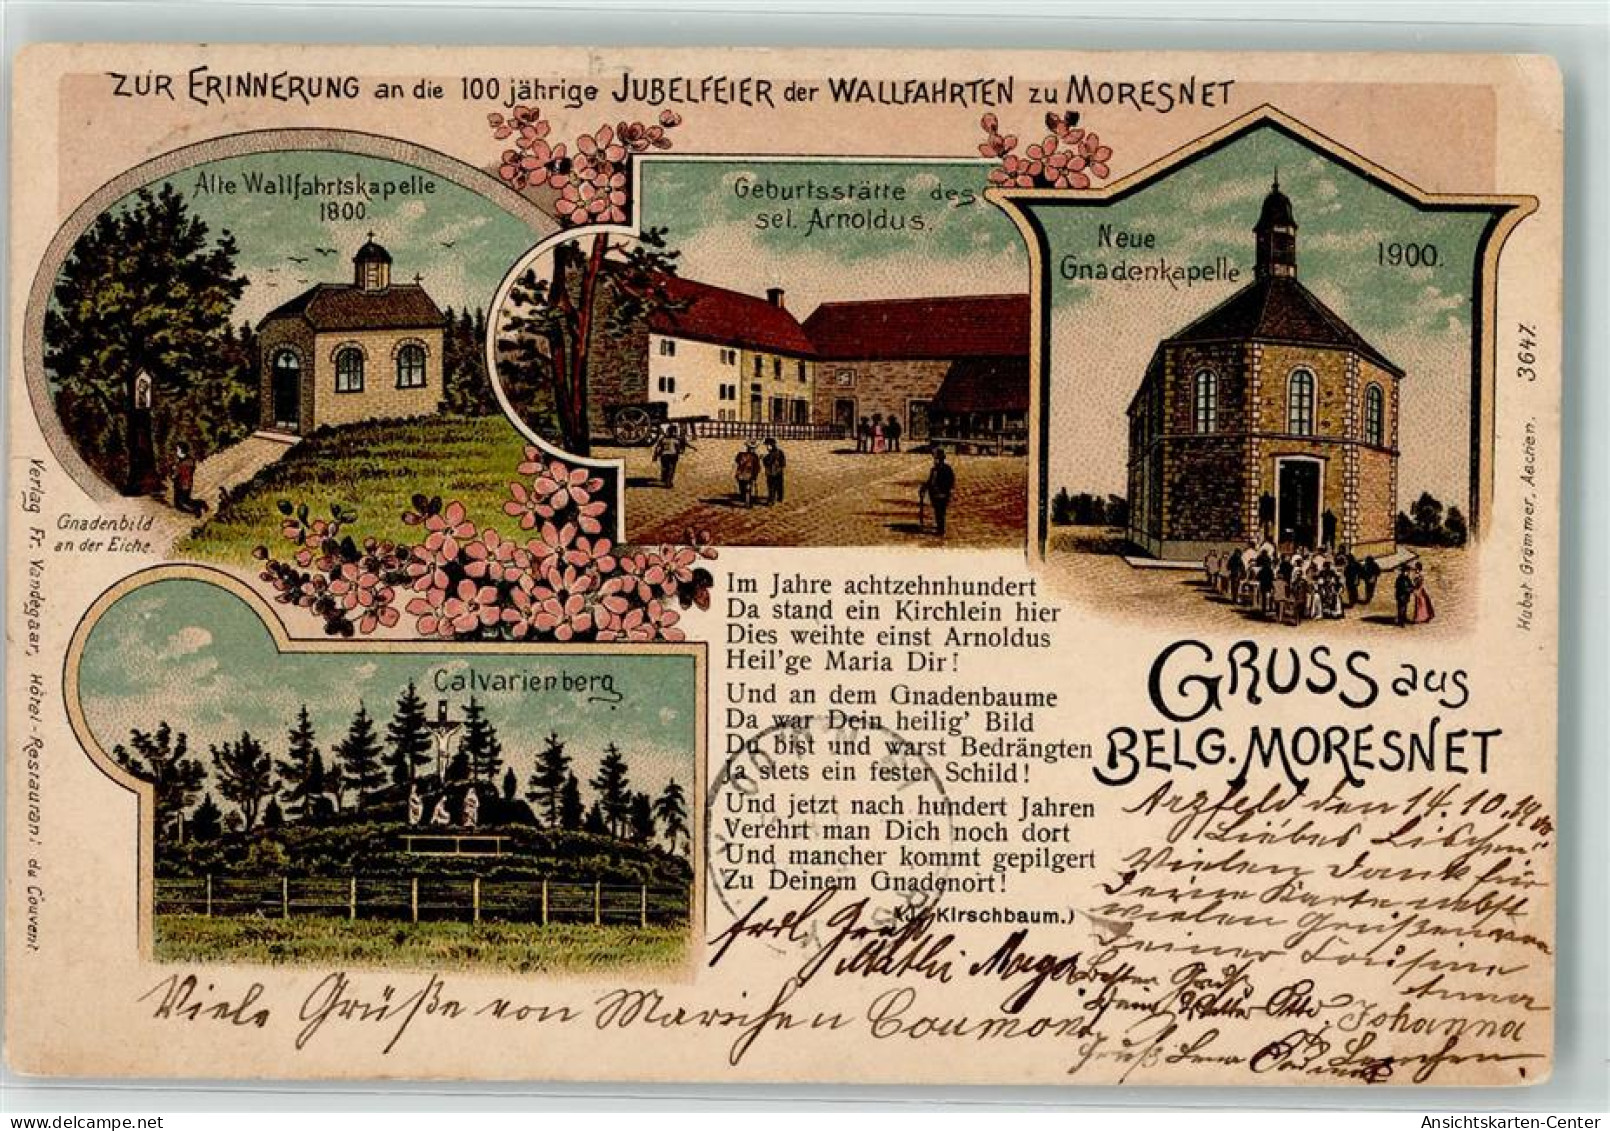 ZUR ERINNERUNG an die 100 jährige JUBELFEIER der WALLFAHRTEN zu MORESNET
Alte Wallfahrtskapelle
1800.
Gnadenbild
an der Eiche.
Geburtsstätte des
sel. Arnoldus.
Neue
Gnadenkapelle
1900.
Calvarienberg
Verlag Fr. Vandegaar, Hôtel-Restaurant du Couvent.
Hubert Grommer, Aachen. 3647.
Im Jahre achtzehnhundert
Da stand ein Kirchlein hier
Dies weihte einst Arnoldus
Heil'ge Maria Dir!
Und an dem Gnadenbaume
Da war Dein heilig' Bild
Du bist und warst Bedrängten
Ja stets ein fester Schild!
Und jetzt nach hundert Jahren
Verehrt man Dich noch dort
Und mancher kommt gepilgert
Zu Deinem Gnadenort!
Kirschbaum.)
GRUSS aus
BELG. MORESNET
Arzfeld den 14.10.1900
Liebes Lischen
Vielen Dank für
Deine Karte nebst
vielen Grüßen von
Deiner Cousine
Anna
Johanna
Gruß Lena
Lenchen
Viele Grüße von Mariechen Coumont
Ansichtskarten-Center